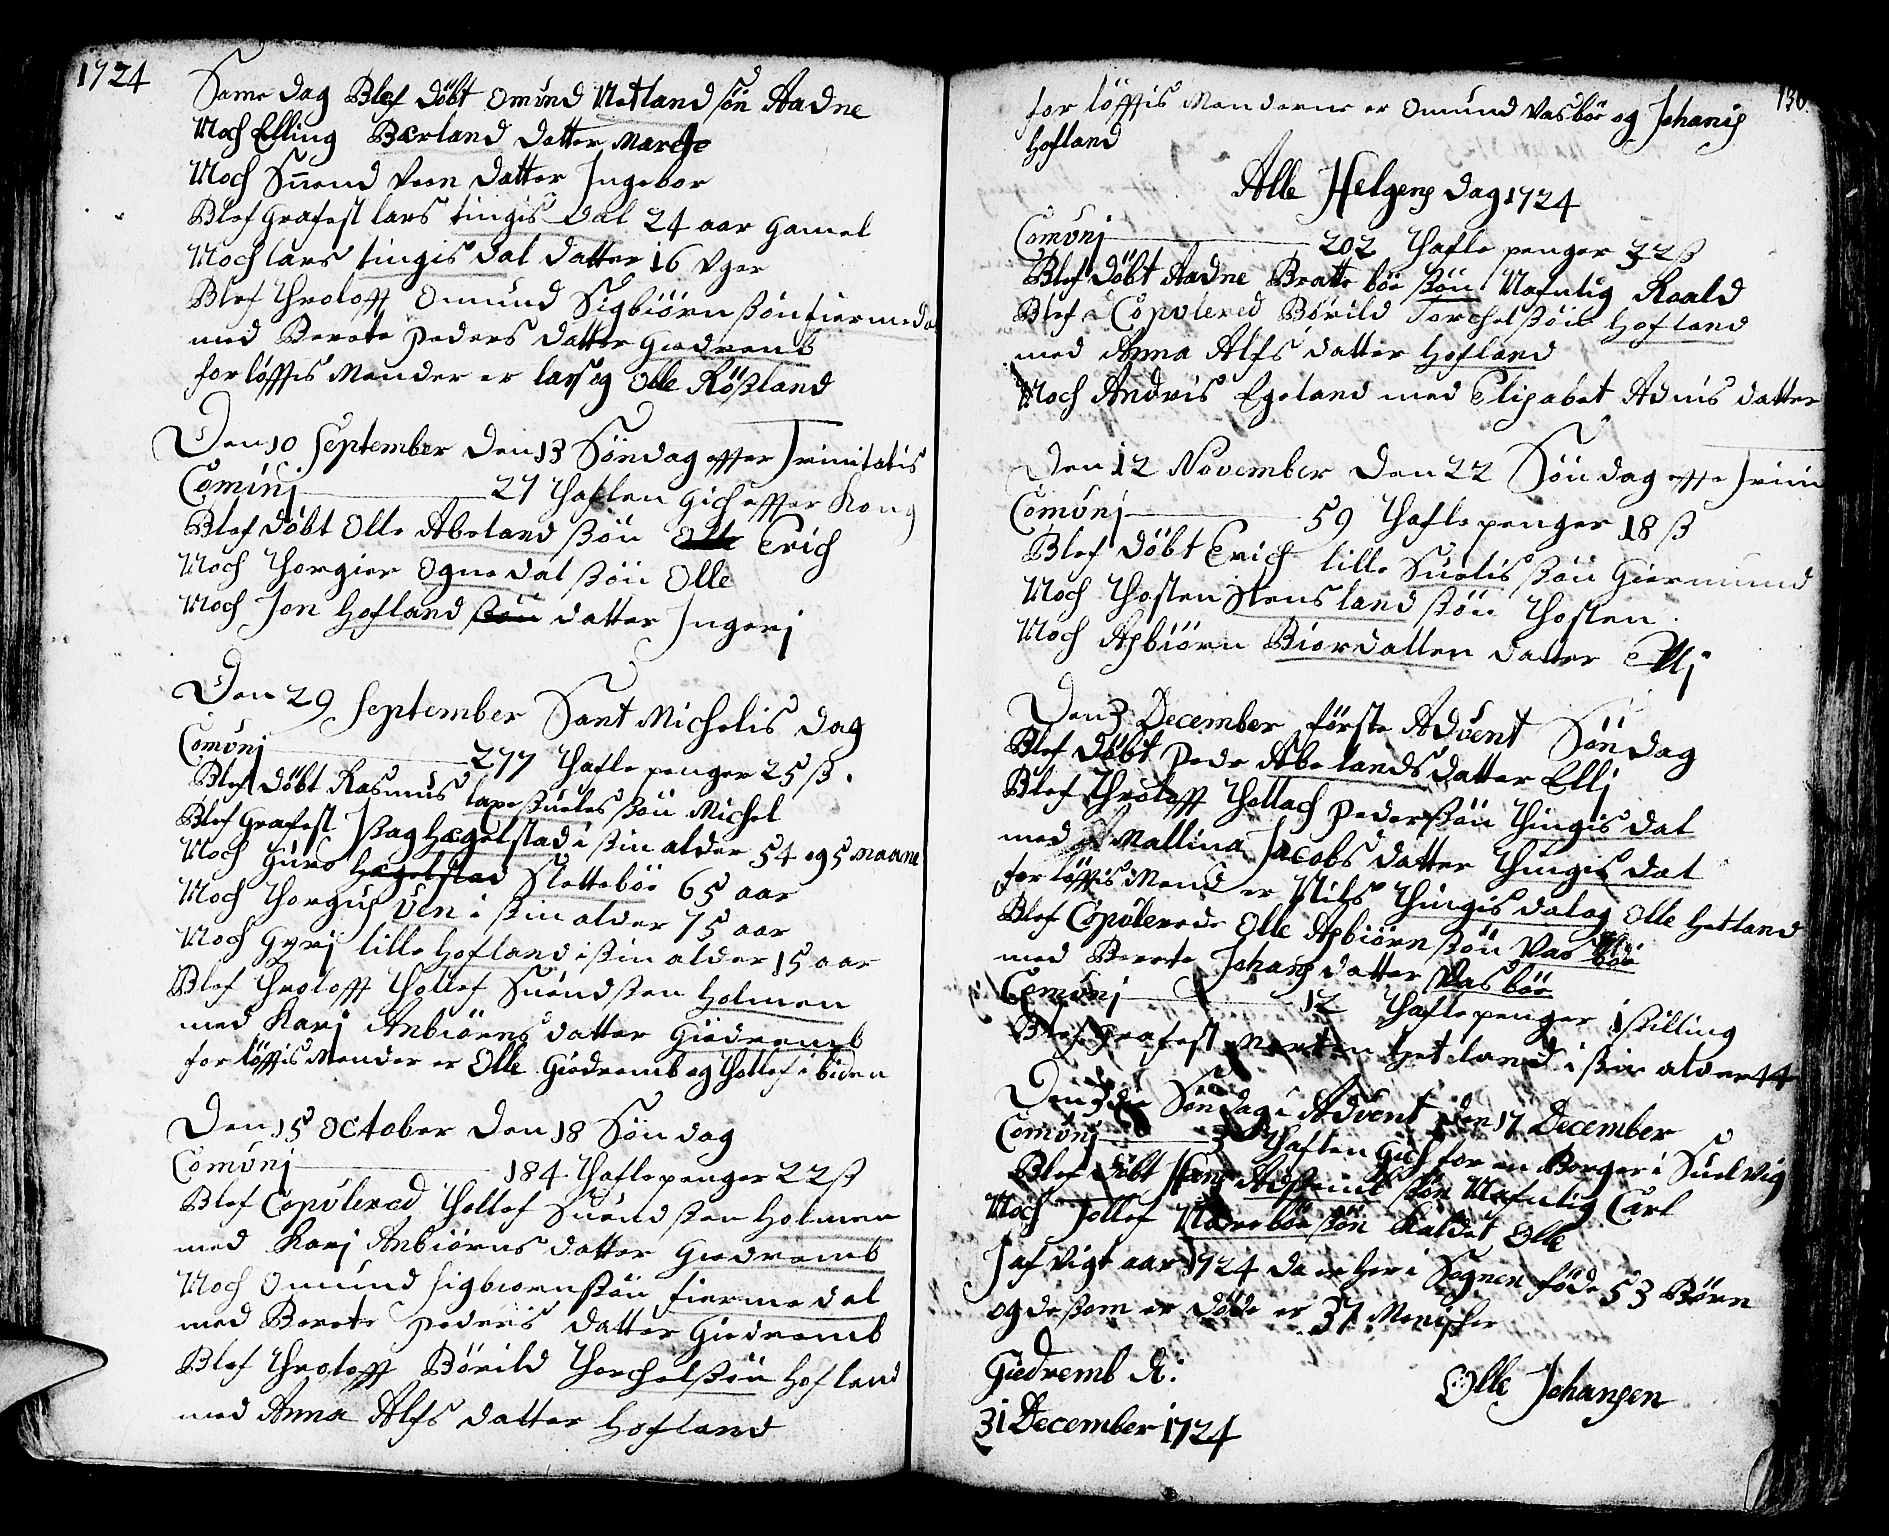 1724
Same dag Blef döbt Omund Netland sön Aadne
Noch Elling Bærland datter Marthe
Noch Suend Veen datter Ingebor
Blef Grafest lars tingis dal 24 aar gamel
Noch lars tingis dal datter 16 Vger
Blef Throloff Omund Sigbiörn ßön fiermedal
med Berete Peders datter Giedremb
forlöffis Mender er lars og Olle Rößland
Den 10 September Den 13 Söndag effter Trinitatis
Comunj 27 Thaflen gich effter Kong
Blef döbt Olle Abeland ßön Erich
Noch Thorgier Ognedal ßön Olle
Noch Jon Hofland datter Ingerj
Den 29 September Sant Michelis dag
Comunj 277 Thafle penger 25 ß.
Blef döbt Rasmus laxesueles ßön Michel
Blef Grafest Isag Hægelstad i ßin alder 54 og 5 maane
Noch Guro Sletteböe 65 aar
Noch Thorgus Uen i ßin alder 75 aar
Noch Gyrj lille Hofland i ßin alder 15 aar
Blef Throloff Thollef Suendßen Holmen
med Karj Anbiörns datter Giedremb
forlöffis Mender er Olle Giedremb og Thollef ibiden
Den 15 October Den 18 Söndag
Comunj 184 Thafle penger 22 ß
Blef Copulered Thollef Suendßen Holmen
med Karj Anbiörns datter Giedremb
Noch Omund Sigbiornßön fiermedal
med Berete Peders datter Giedremb
Blef Throloff Börild Thorchelßön Hofland
med Anna Alfs datter Hofland
130.
forlöffis Menderne er Omund Vasböe og Johanis
Hofland
Alle Helgens Dag 1724
Comunj 202 Thafle penger 32 ß
Blef döbt Aadne Bratteböe ßön Nafnlig Roald
Blef Copulered Börild Torchelßön Hofland
med Anna Alfs datter Hofland
Noch Andris Egeland med Elisabet Adnis datter
Den 12 November Den 22 Söndag effte Trini
Comunj 59 Thafle penger 18 ß
Blef döbt Erich lille Suelis ßön Giermund
Noch Thosten Stensland ßön Thosten.
Noch Asbiörn Biordatten datter Ellj
Den 3 December förste Advent Söndag
Blef döbt Peder Abelands datter Ellj
Blef Throloff Thollach Pederßön Thingis dal
med Mallina Jacobs datter Thingis dal
forlöffis Mend er Nils Thingis dal og Olle Hetland
Blef Copulerede Olle Asbiörnßön Vasböe
med Berete Johans datter Vasböe
Comunj 12 Thafle penger 1 skilling
Blef Grafest Morten Hetland i ßin alder 44
Den 3die Söndag i Advent Den 17 December
Comunj 3 Thaflen gich for en Borger i Suelvig
Blef döbt ßön Nafnlig Carl
Noch Tollef ßön kaldet Olle
I af vigt aar 1724 da er her i Sognen föde 53 Börn
og deßom er döde er 37 Menisker
Giedremb d:
31 December 1724
Olle Johansen